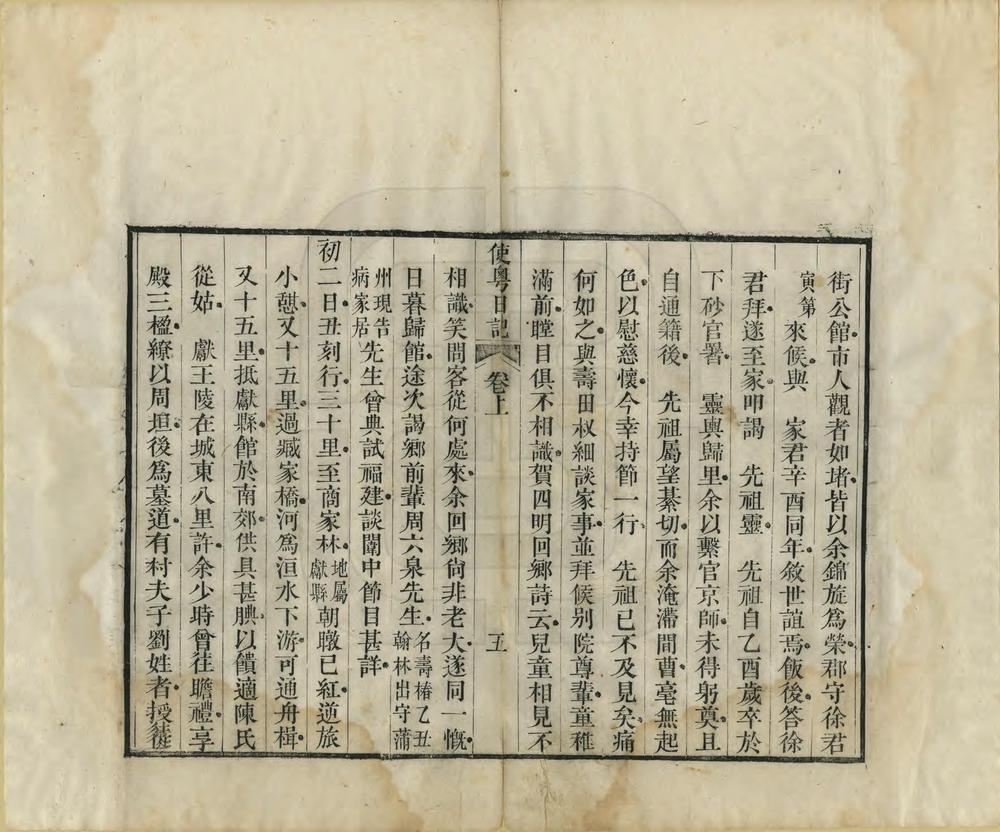 街公館市人觀者如堵皆以余錦旋為榮郡守徐君
寅第來候與　家君辛酉同年敘世誼焉飯後答徐
君拜遂至家叩謁　先祖靈　先祖自乙酉歲卒於
下砂官署　靈輿歸里余以繫官京師未得躬奠且
自通籍後　先祖屬望綦切而余淹滯間曹毫無起
色以慰慈懷今幸持節一行　先祖已不及見矣痛
何如之與壽田叔細談家事並拜候別院尊輩童稚
滿前瞠目俱不相識賀四明回鄉詩云兒童相見不
使粵日記　卷上　五
相識笑問客從何處來余回鄉尙非老大遂同一慨
日暮歸館途次謁鄉前輩周六泉先生名壽椿乙丑翰林出守蒲
州現告病家居先生曾典試福建談闈中節目甚詳
初二日丑刻行三十里至商家林地屬獻縣朝暾已紅逆旅
小憩又十五里過臧家橋河為洹水下游可通舟楫
又十五里抵獻縣館於南郊供具甚腆以饋適陳氏
從姑　獻王陵在城東八里許余少時曾往瞻禮享
殿三楹繚以周垣後為墓道有村夫子劉姓者授徒